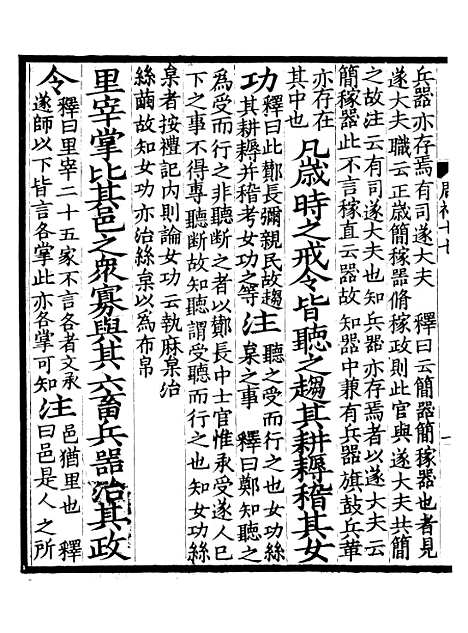 兵器亦存焉有司遂大夫　釋曰云簡器簡稼器也者見
遂大夫職云正歳簡稼器脩稼政則此官與遂大夫共簡
之故注云有司遂大夫也知兵器亦存焉者以遂大夫云
簡稼器此不言稼直云器故知器中兼有兵器旗鼓兵革
亦存在
其中也
凡歳時之戒令皆聽之趨其耕耨稽其女
功
釋曰此酇長彌親民故趨
其耕耨并稽考女功之等
注
聽之受而行之也女功絲
枲之事　釋曰鄭知聽之
為受而行之非聽斷之者以酇長中士官惟承受遂人已
下之事不得專聽斷故知聽謂受聽而行之也知女功絲
枲者按禮記内則論女功云執麻枲治
絲繭故知女功亦治絲枲以為布帛
里宰掌比其邑之衆寡與其六畜兵器治其政
令
釋曰里宰二十五家不言各者文承
遂師以下皆言各掌此亦各掌可知
注
邑猶里也　釋
曰邑是人之所